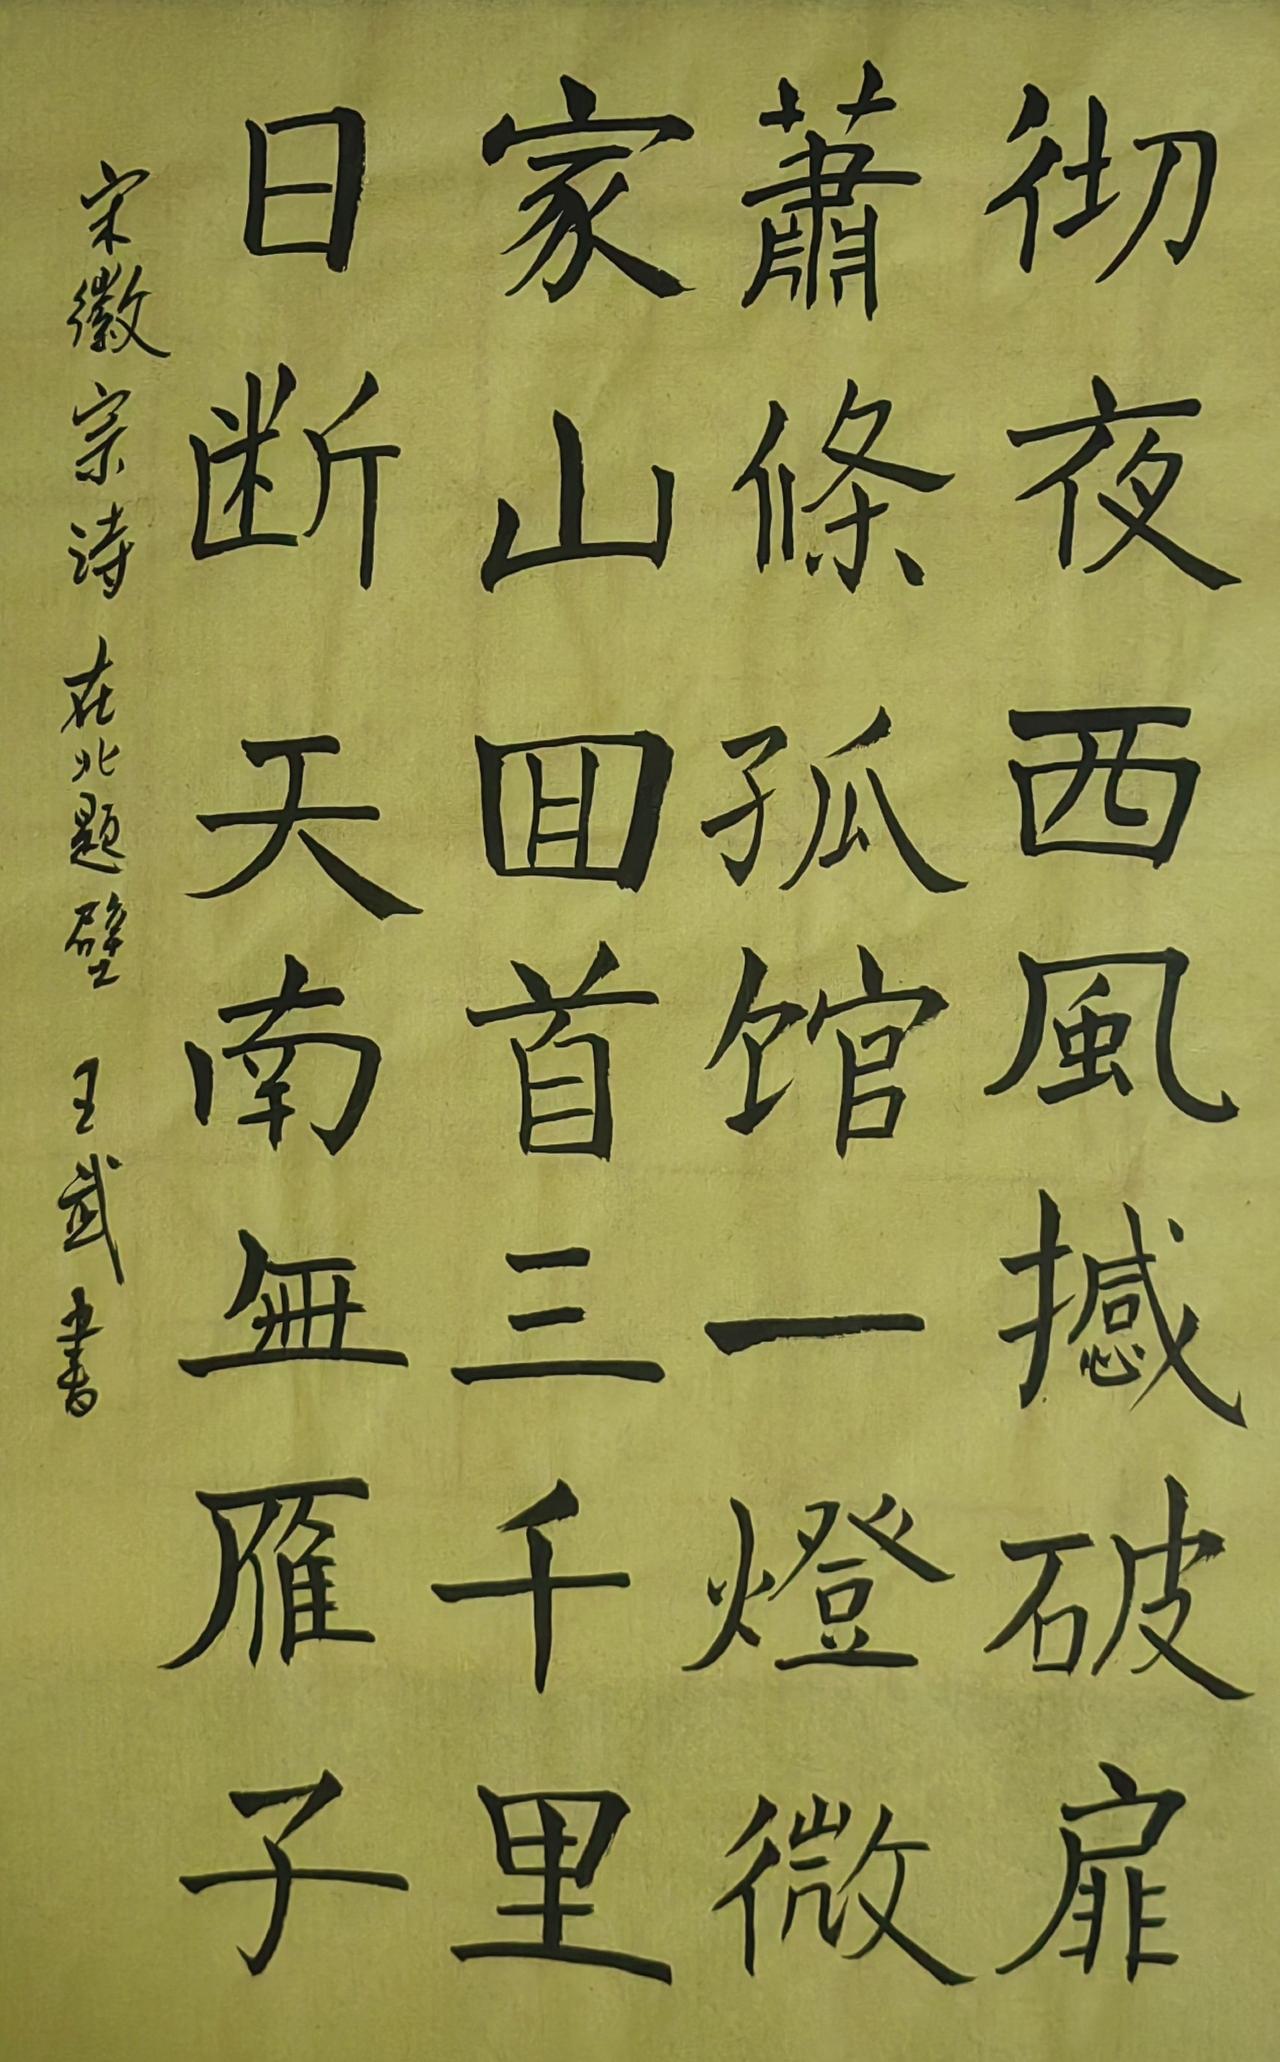 彻夜西風撼破扉
蕭條孤馆一燈微
家山囬首三千里
日断天南無雁子
宋徽宗诗 在北題壁 王武書